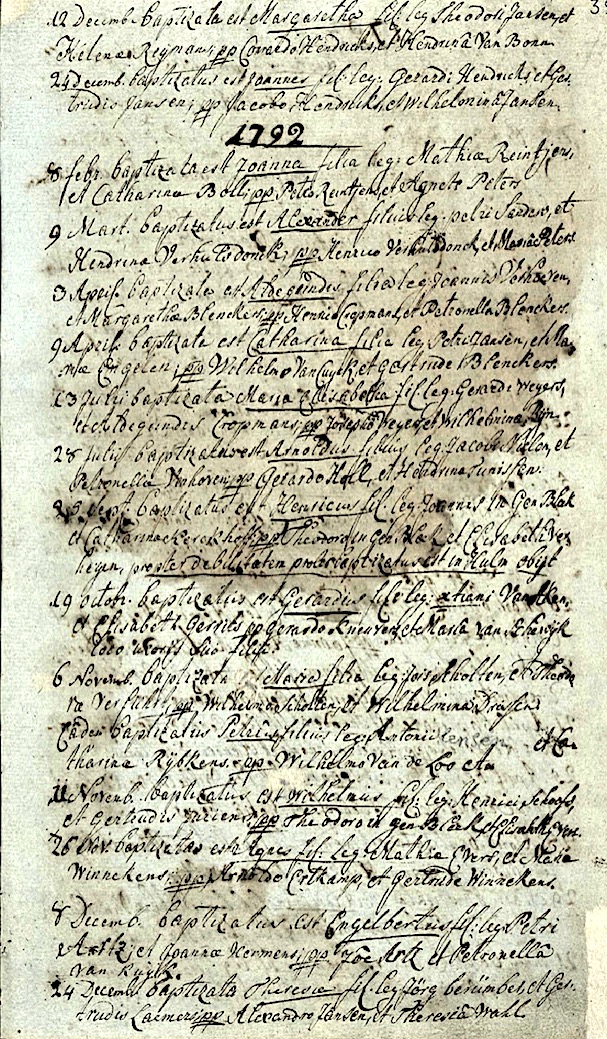 12 Decemb. baptizata est Margaretha fil: leg: Theodori Jansen, et
Helenæ Reymans, pp Hendricks, et Hendrina Van Bonn
24 Decemb. baptizatus est Joannes fil: leg: Gerardi Hendricks, et Ger-
trudis Jansen, pp Jacobo Hendricks, et Wilhelmina Jansen.
1792
8 febr. baptizata est Joanna filia leg: Mathiæ Reintjens,
et Catharinæ Boll, pp Petro Reintjens, et Agnete Peters
9 Mart. baptizatus est Alexander filius leg: petri Sanders, et
Hendrinæ Verhulsdonck, pp Henrico Verhulsdonck, et Maria Peters
3 April. baptizata est Aldegundis filia leg: Joannis Verhoeven,
et Margarethæ Blenckers, pp Henrico Cropmans, et Petronella Blenckers.
9 April. baptizata est Catharina filia leg: Petri Jansen, et Ma-
riæ Engelen, pp Wilhelmo Van Cuyk, et Gertrude Blenckers.
13 Julii baptizata Maria Elisabetha fil: leg: Gerardi Weyers,
et Aldegundis Cropmans, pp Josepho Weyers, et Wilhelmina
28 Julii baptizatus est Arnoldus filius leg: Jacobi et
Petronella Verhoven, pp Gerardo Holl, et Hendrina Tunissen.
25 Sept. baptizatus est Henricus fil: leg: Joannis in Gen Blak
et Catharinæ Kerckhoff, pp Theodoro in gen Blak, et Elisabeth Ver
heyen, propter debilitatem prolis baptizatus est in Hulm obiit
19 octob. baptizatus est Gerardus fil: leg: Van Aken,
et Elisabeth Gerrits pp Gerardo et Maria van
loco uxoris suo
6 Novemb. baptizata Maria filia leg: Scholten, et Theodo
ræ Verfuhrt, pp Wilhelmo Scholten, et Wilhelmina
Eadem baptizatus Petrus filius leg: Antonii Jensen, et Ca-
tharinæ Rybkens, pp Wilhelmo Van de Loo
11 Novemb. baptizatus est Wilhelmus fil: leg: Henrici Schoofs,
et Gertrudis pp Theodoro in gen Blak, et Elisabeth Ver
26 Nov. baptizatus est Agnes fil: leg: Mathiæ Evers, et Mariæ
Winnekens, pp Arnoldo Ertkamp, et Gertrude Winnekens.
8 Decemb. baptizatus est Engelbertus fil: leg: Petri
Artz, et Joannæ Hermens, pp Joe Artz et Petronella
Van Kuyk.
24 Decemb. baptizata Theresia fil: leg: et Ger-
trudis pp Alexandro Jansen, et Theresia Wahl